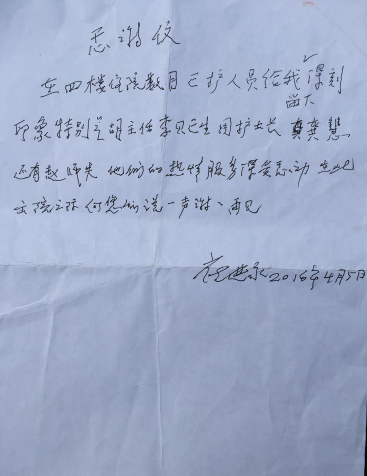 感谢信
在四楼住院数月已护人员给我留下深刻
印象特别是胡主任李贝已生周护士长 龚慧
还有赵师夫 他们的热情服务深受感动 在此
出院之际向您们说一声谢、再见
2016年4月5日